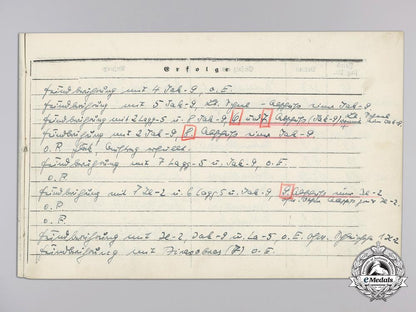 Erfolge
Feindberührung mit 4 Jak-9, o.E.
Feindberührung mit 5 Jak-9, Lt. - Abschuss einer Jak-9
Feindberührung mit 2 Lagg-5 u. 8 Jak-9, 6 und 7 Abschuss (Jak-9) Lt.
Feindberührung mit 2 Jak-9, 8 Abschuss einer Jak-9.
o.F. Auftrag erfüllt.
Feindberührung mit 7 Lagg-5 u. Jak-9, o.E.
o.F.
Feindberührung mit 7 Il-2 u. 6 Lagg-5 u. Jak-9, 9 Abschuss einer Il-2
o.F.
o.F.
Feindberührung mit Il-2, Jak-9 u. La-5 o.E.
Feindberührung mit Airacobras (7) o.E.
eMedals